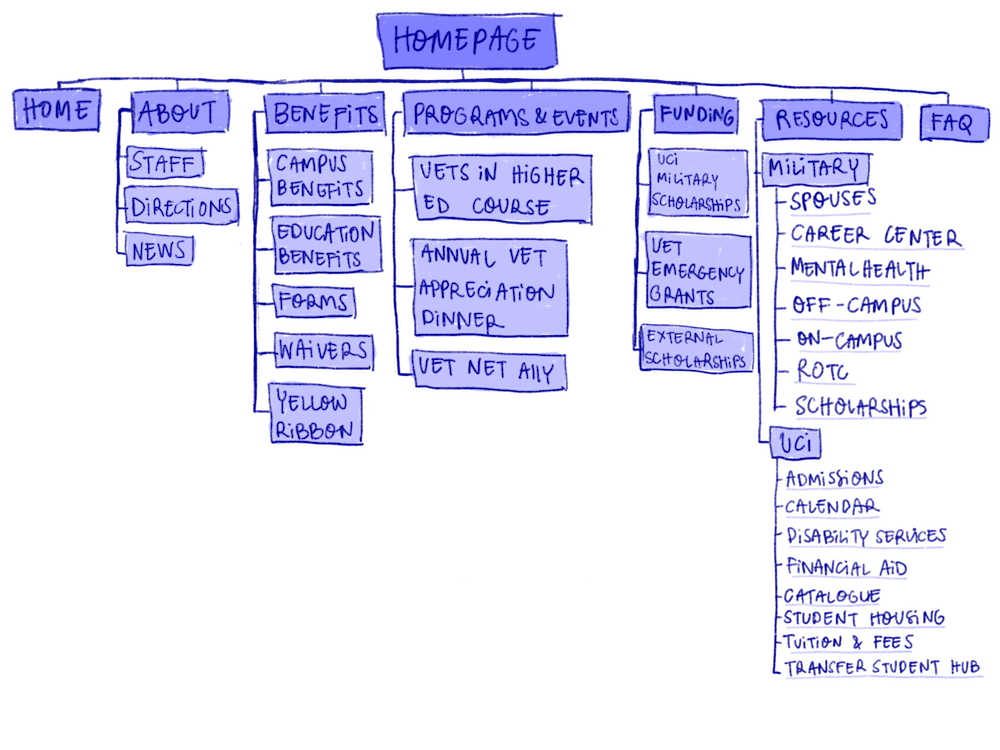 HOMEPAGE
HOME
ABOUT
STAFF
DIRECTIONS
NEWS
BENEFITS
CAMPUS
BENEFITS
EDUCATION
BENEFITS
FORMS
WAIVERS
YELLOW
RIBBON
PROGRAMS & EVENTS
VETS IN HIGHER
ED COURSE
ANNUAL VET
APPRECIATION
DINNER
VET NET Ally
FUNDING
UCI
MILITARY
SCHOLARSHIPS
VET
EMERGENCY
GRANTS
EXTERNAL
SCHOLARSHIPS
RESOURCES
MILITARY
SPOUSES
CAREER CENTER
MENTAL HEALTH
OFF-CAMPUS
ON-CAMPUS
ROTC
SCHOLARSHIPS
UCI
ADMISSIONS
CALENDAR
DISABILITY SERVICES
FINANCIAL AID
CATALOGUE
STUDENT HOUSING
TUITION & FEES
TRANSFER STUDENT HUB
FAQ